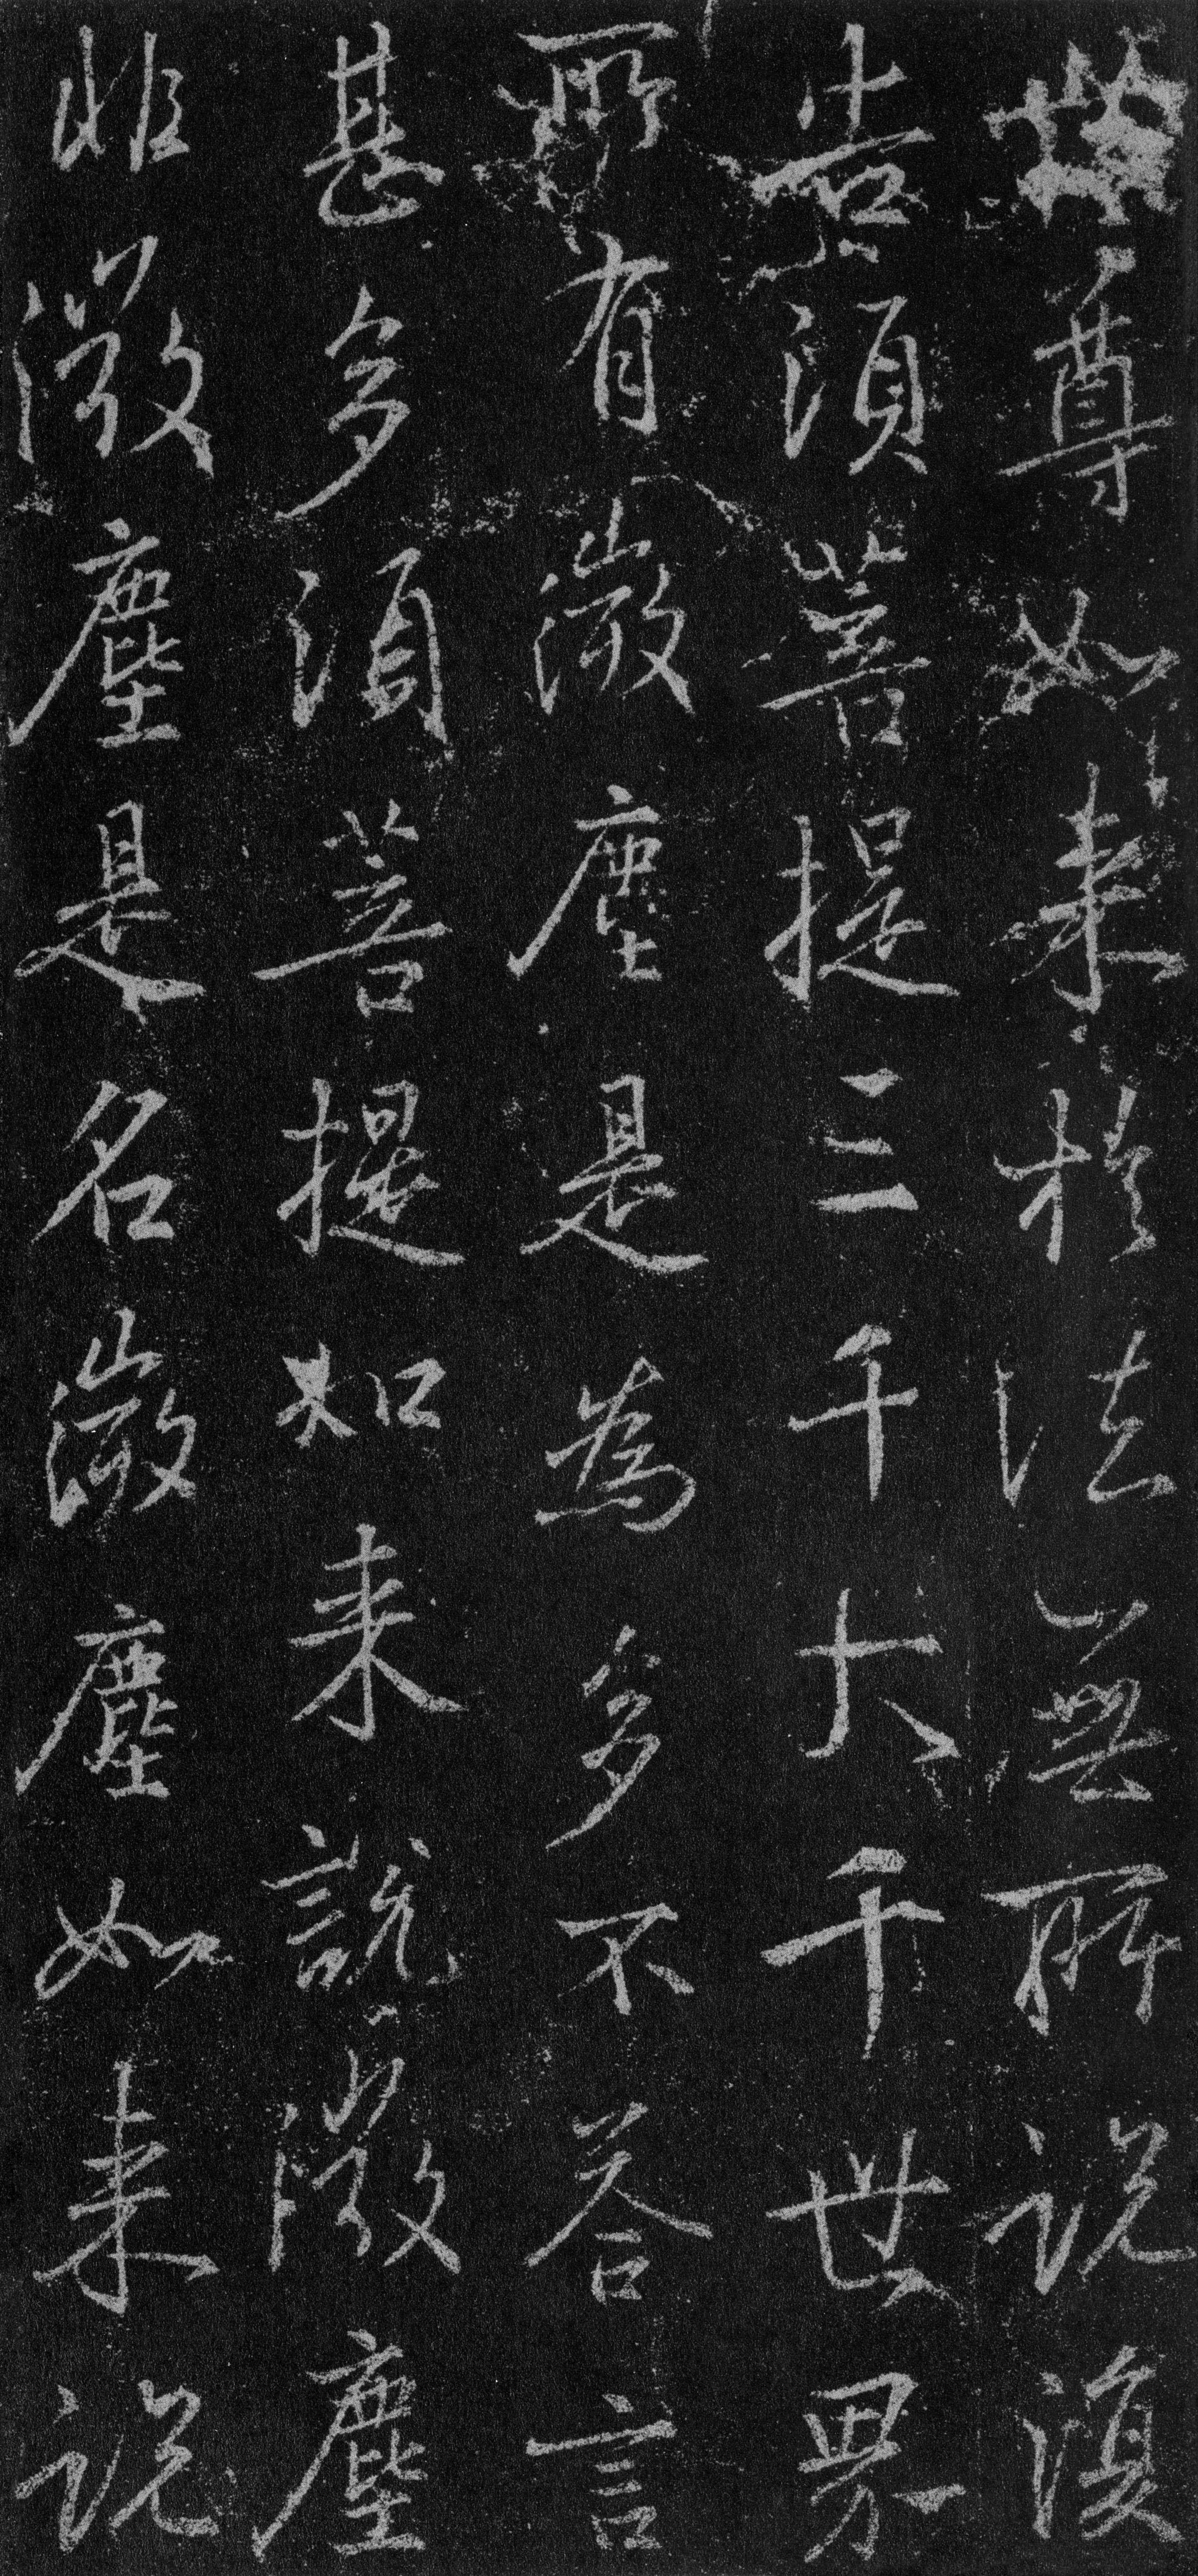 世尊如来於法無所說復
告須菩提三千大千世界
所有微塵是為多不答言
甚多須菩提如来說微塵
非微塵是名微塵如来說